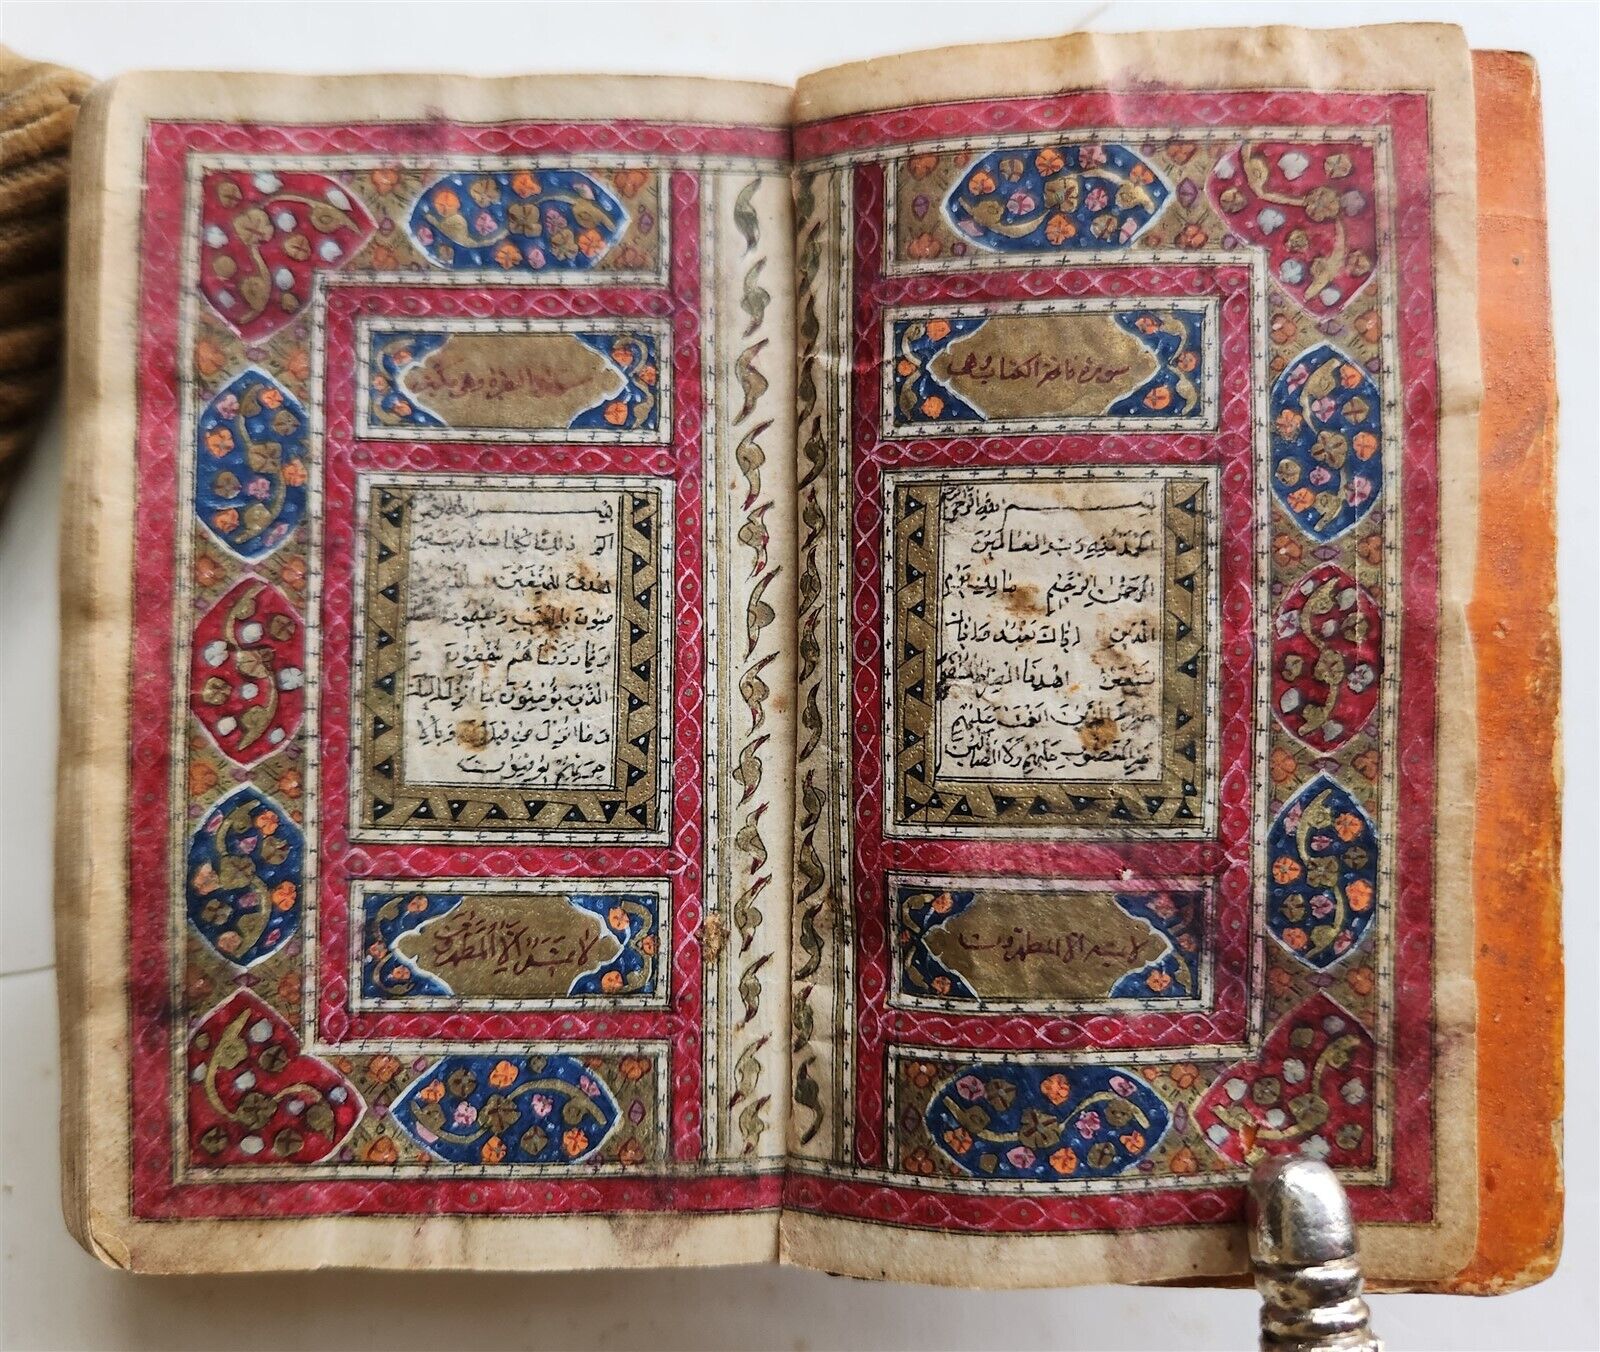 سورة فاتحة الكتاب
بسم الله الرحمن
الحمد لله رب العالمين
الرحمن الرحيم مالك يوم
الدين اياك نعبد و اياك
نستعين اهدنا الصراط المستقيم
صراط الذين انعمت عليهم
غير المغضوب عليهم ولا الضالين
لا يمسه الا المطهرون
سورة البقرة
بسم الله
الم ذلك الكتاب لا ريب فيه
هدى للمتقين الذين
منون بالغيب و يقيمون
و مما رزقناهم ينفقون و
الذين يؤمنون بما انزل اليك
و ما انزل من قبلك و بالا
خرة هم يوقنون
لا يمسه الا المطهرون